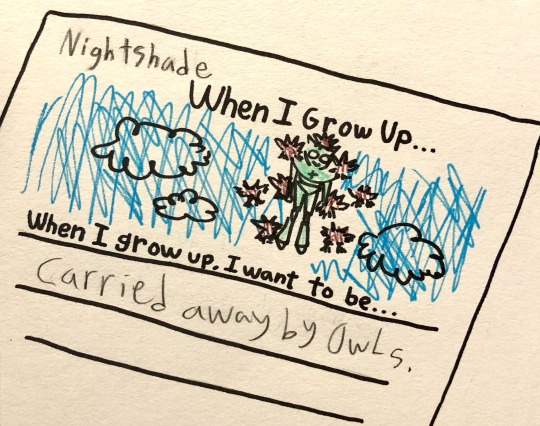 Nightshade
When I Grow Up...
When I grow up, I want to be...
Carried away by Owls.